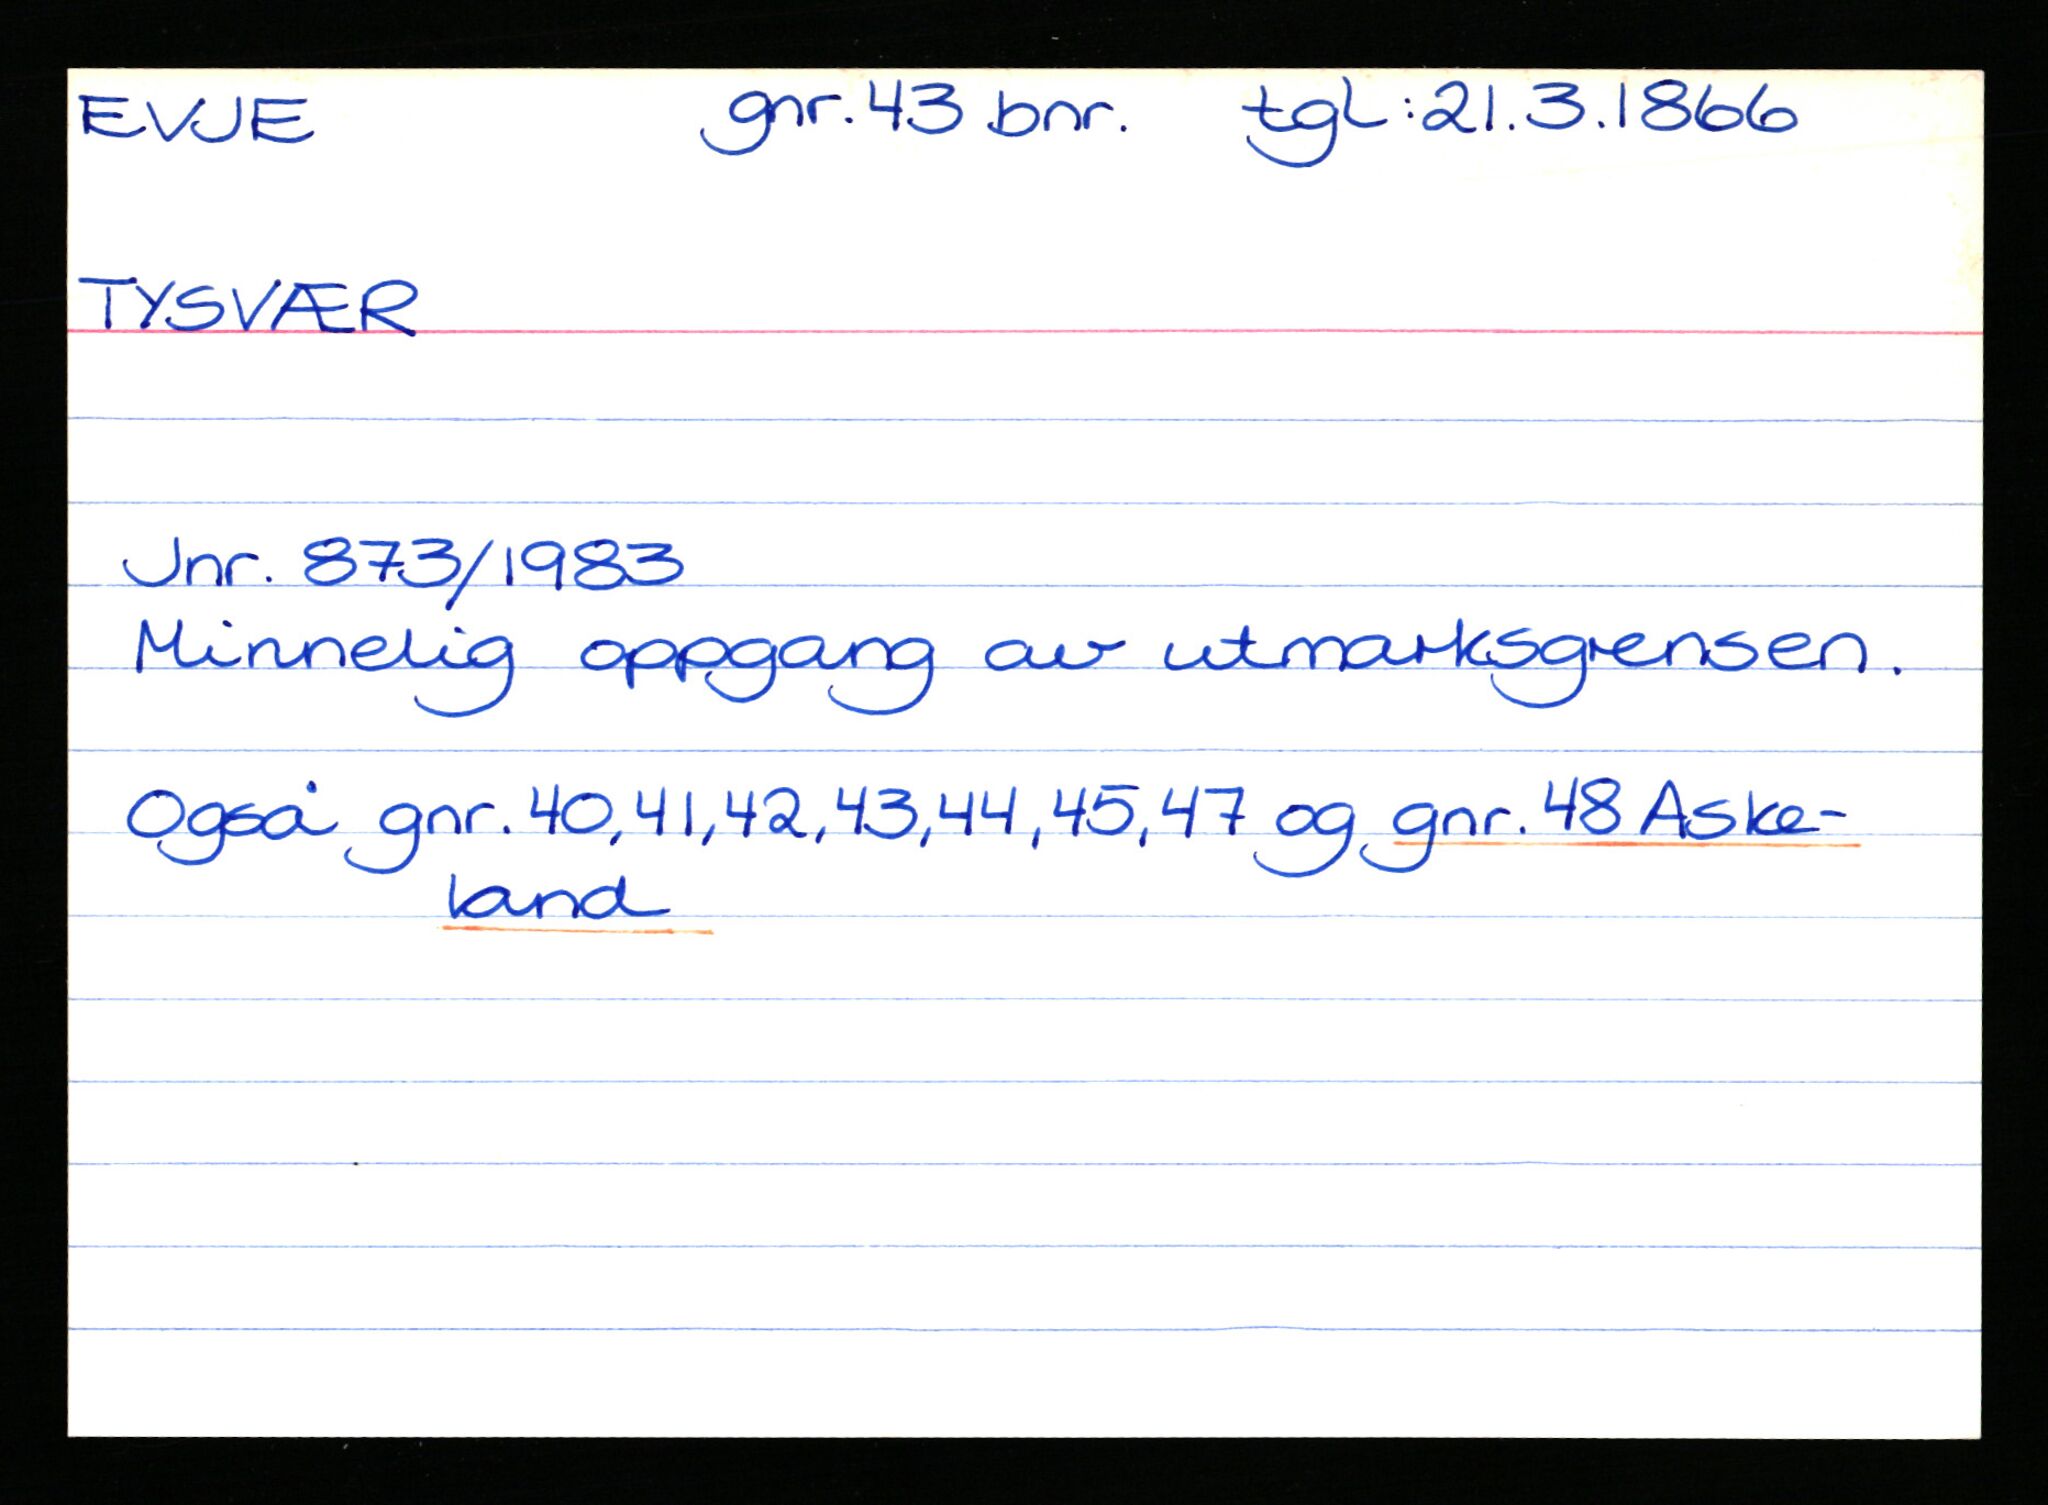 EVJE gnr. 43 bnr. tgl: 21.3.1866
TYSVÆR
Jnr. 873/1983
Minnelig oppgang av utmarksgrensen.
Også gnr. 40, 41, 42, 43, 44, 45, 47 og gnr. 48 Aske-
land